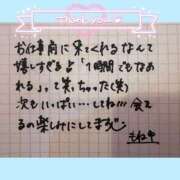 Thank you
お仕事前に来てくれるなんて
嬉しすぎるよ「1時間でもなめ
れる」って笑っちゃった(笑)
次もいっぱい…してね!!! 会え
るの楽しみにしてます
もね